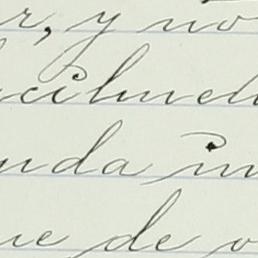 r, y no
cilmen
nda in
ue de o